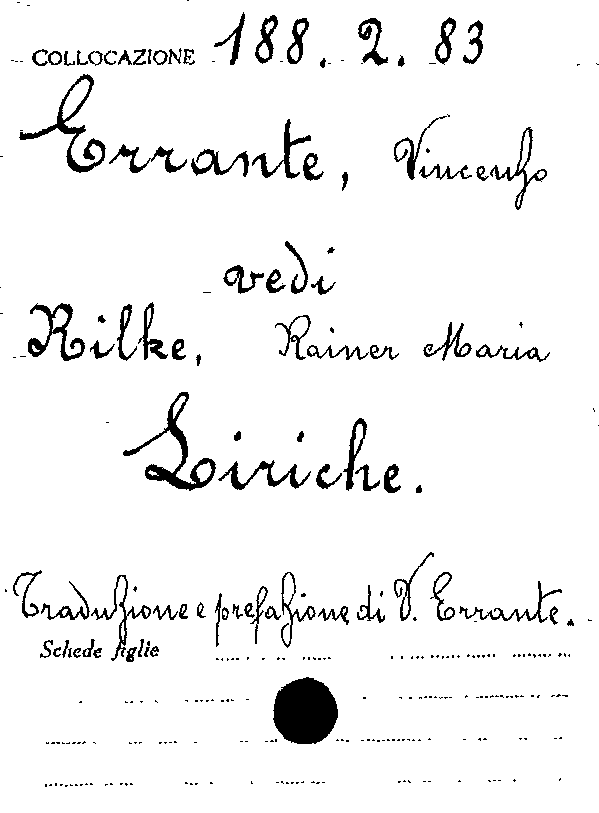 COLLOCAZIONE 188. 2. 83
Errante, Vincenzo
vedi
Rilke, Rainer Maria
Liriche.
Traduzione e prefazione di V. Errante.
Schede figlie